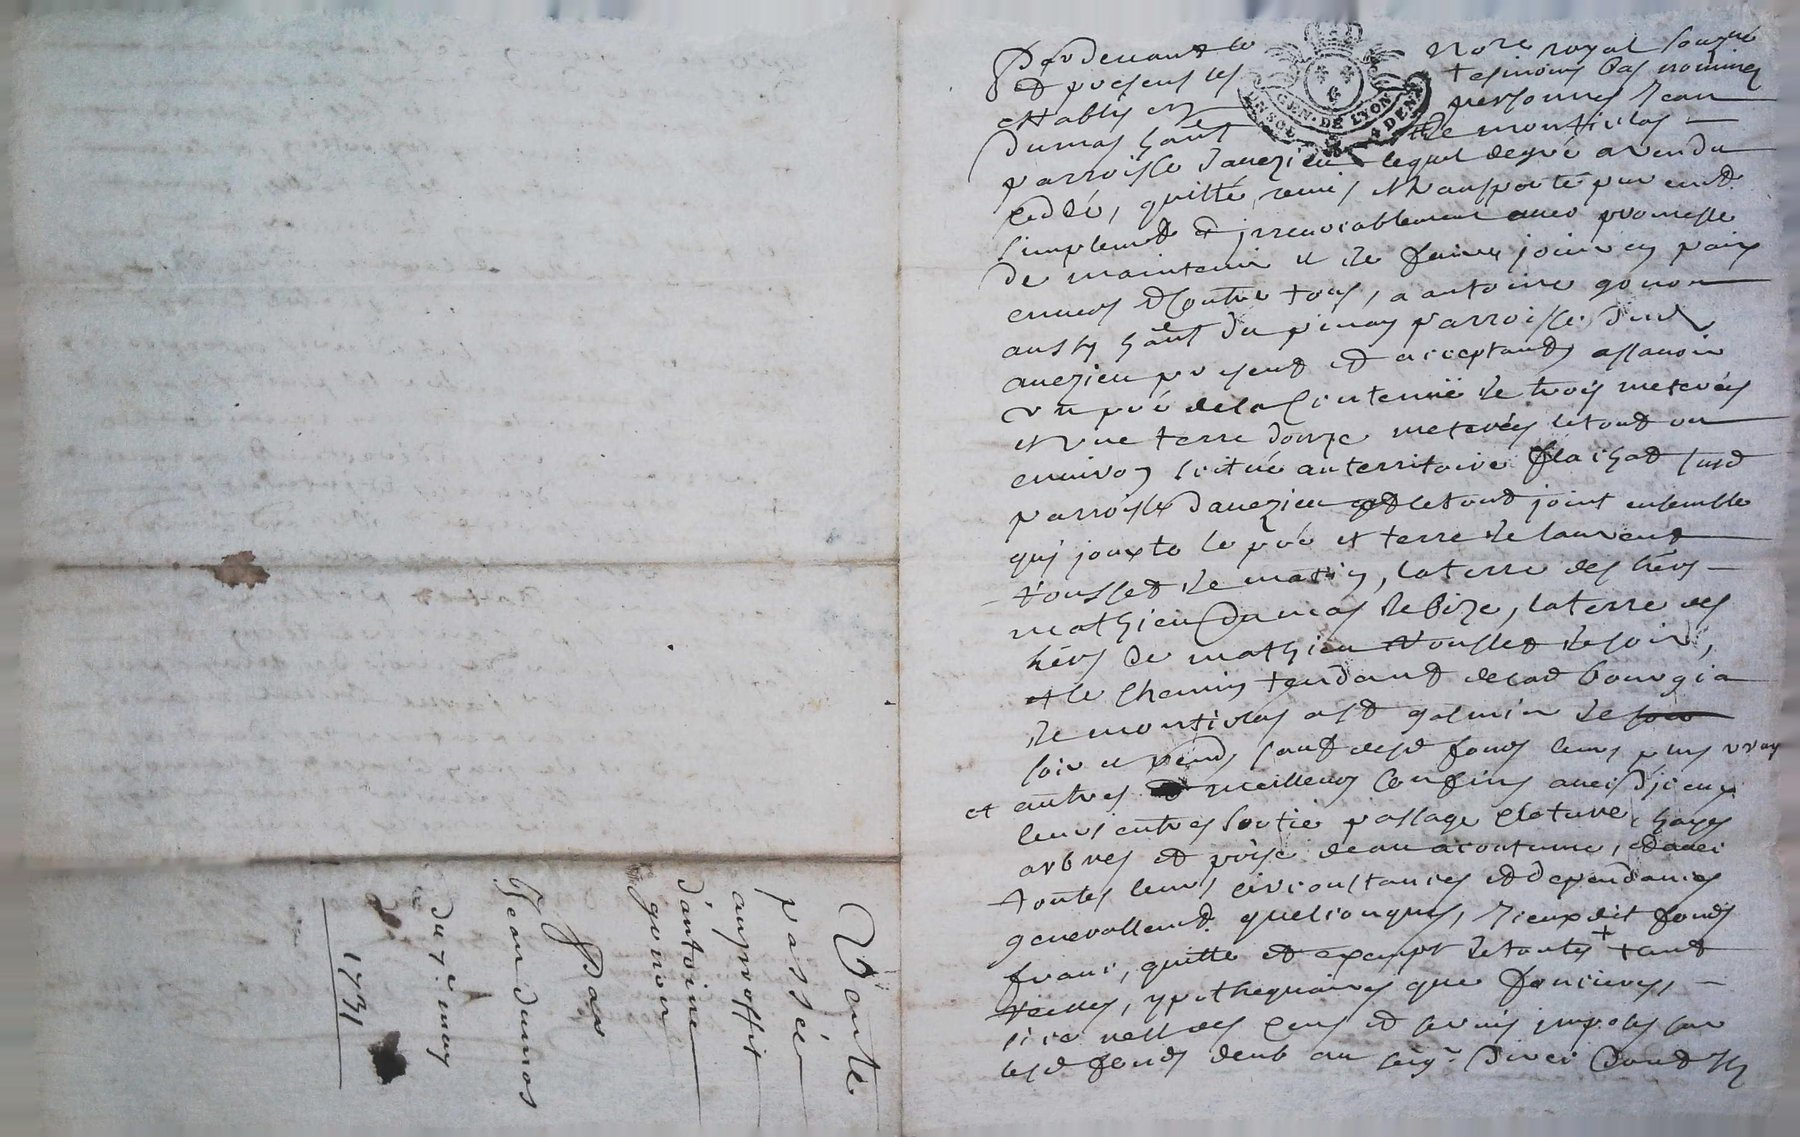 Pardevant le Nore royal sougne
et presens les tesmoins bas nommes
establis en personnes Jean
Dumas hant de monticlas
parroisse daveizieu lequel de gré a vendu
ceddé, quitté, remis et transporté puremt
simplemt et irrevocablement avec promesse
de maintenir et de faire jouir en paix
envers et contre tous, a antoine gonon
aussy hant du pinay parroisse dud
aveizieu present et acceptant, assavoir
un pré de la contenüe de trois meterées
et une terre douze meterées le tout ou
environ scitué au territoire susd
parroisse daveizieu et le tout joint ensemble
qui jouxte le pré et terre de laurent
Vousset de matin, la terre des hers
mathieu Dumas de bize, la terre des
hers de mathieu Vousset de soir,
et le chemin tendant de
de monticlas a st galmier de
soir et sauf desd fonds leurs plus vray
et autres meilleurs confins avec
leurs entrées sortie passage cloture, hayes
arbres et prise deau acoutumé, et avec
toutes leurs circonstances et dependances
generallemt quelconques, fonds
franc, quitte et exempt de toutes + tant
vieilles, ypothequaires que foncieres,
si ce nest des cens et servis imposés sur
lesd fonds deub au seigr dont
Vante
passée
au proffit
d'antoine
gonon
Par
Jean dumas
du 7e may
1731
GEN. DE LYON